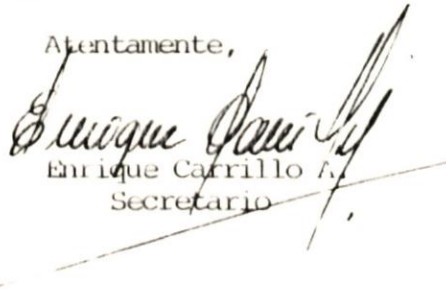 Atentamente,
Enrique Carrillo
Enrique Carrillo A.
Secretario